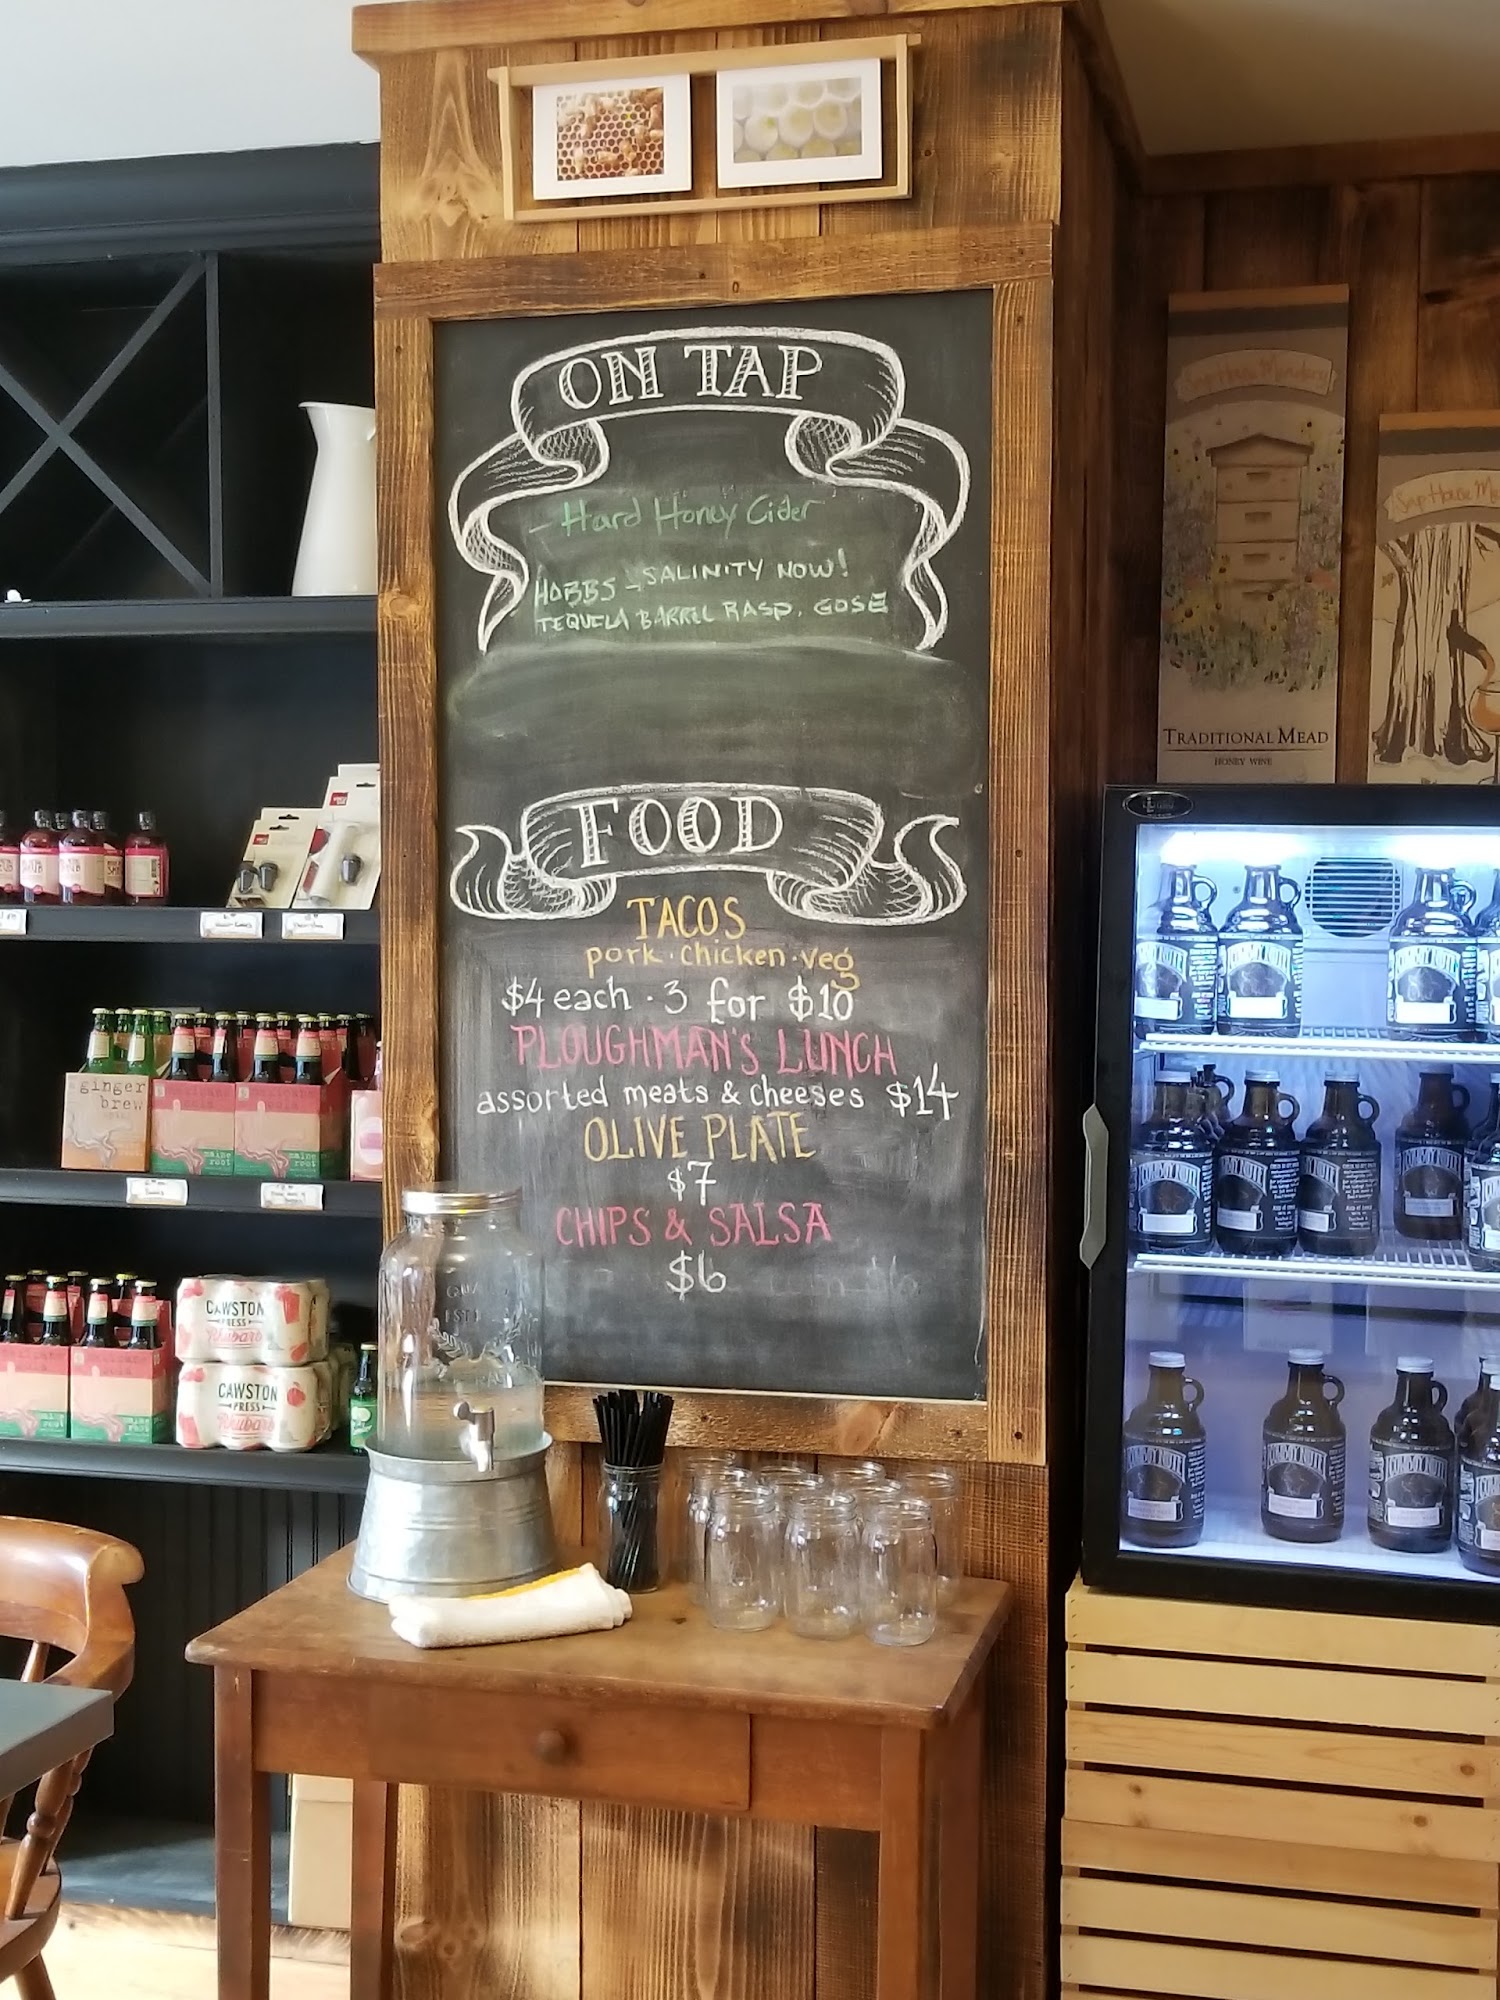 ON TAP
- Hard Honey Cider
HOBBS - SALINITY NOW!
TEQUILA BARREL RASP. GOSE
FOOD
TACOS
pork · chicken · veg
$4 each · 3 for $10
PLOUGHMAN'S LUNCH
assorted meats & cheeses $14
OLIVE PLATE
$7
CHIPS & SALSA
$6
Sap House Meadery
TRADITIONAL MEAD
HONEY WINE
Sap House
ginger
brew
maine
root
maine
root
CAWSTON
PRESS
Rhubarb
CAWSTON
PRESS
Rhubarb